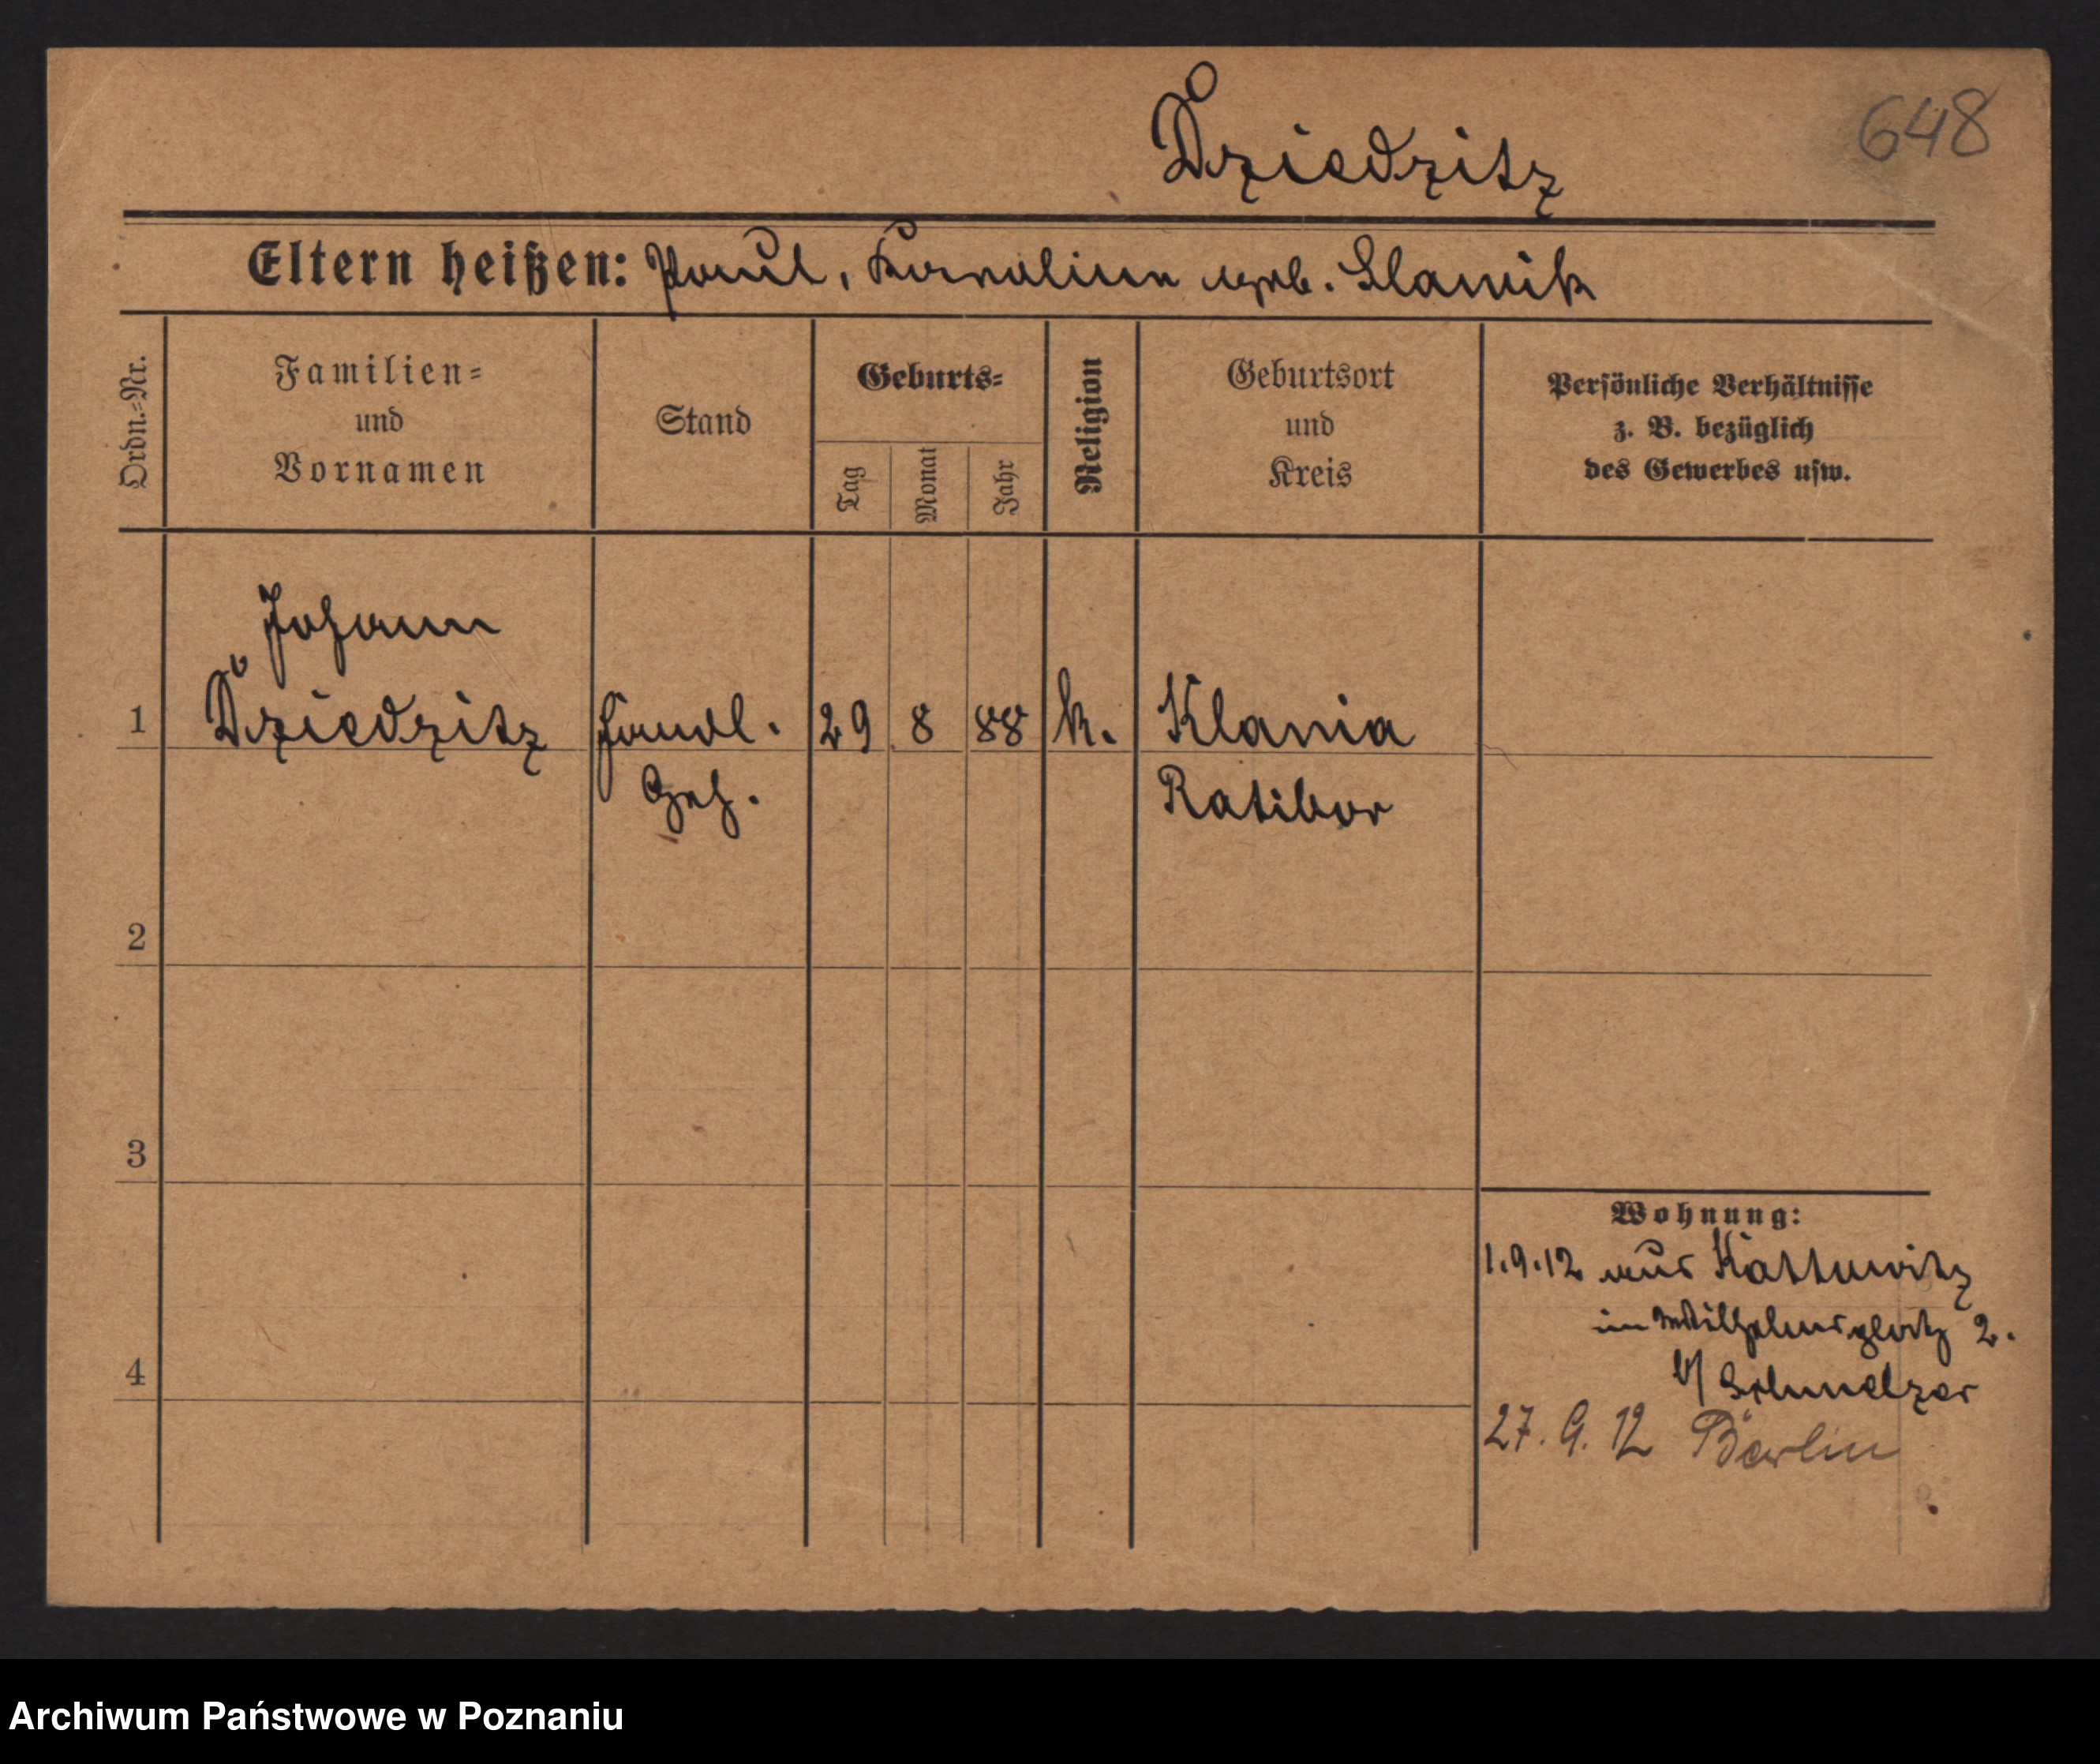 Dziedzitz
648
Eltern heißen: Paul, Kornelium geb. Slamik
Ordn.=Nr.
Familien=
und
Vornamen
Stand
Geburts=
Tag
Monat
Jahr
Religion
Geburtsort
und
Kreis
Persönliche Verhältnisse
z. B. bezüglich
des Gewerbes usw.
Johann
1 Dziedzitz Handl. 29 8 88 k. Klania
Geh. Ratibor
2
3
4
Wohnung:
1.9.12 aus Kattowitz
in Wilhelmsplatz 2.
b/ Schmelzer
27. 9. 12 Berlin
Archiwum Państwowe w Poznaniu